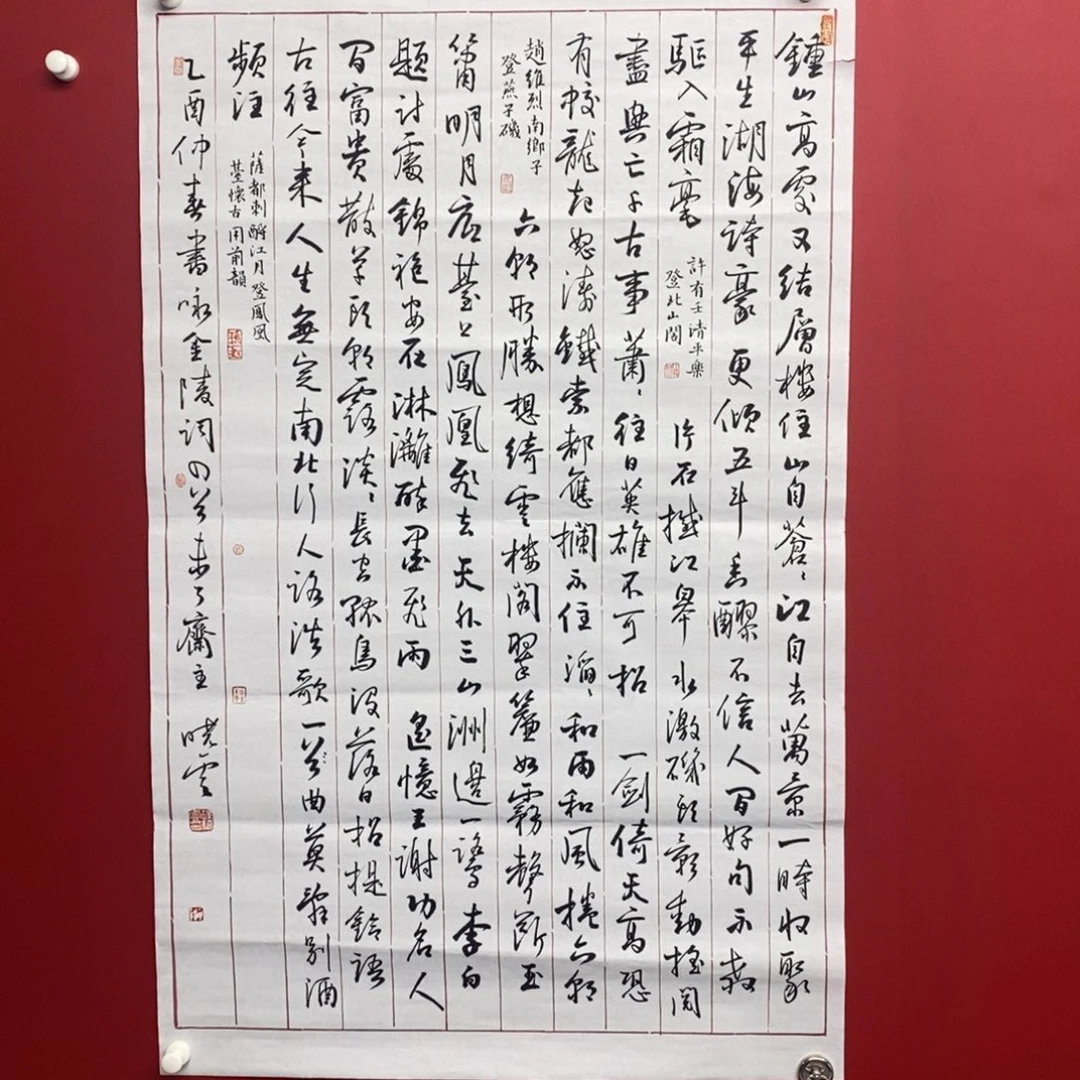 鍾山高處又結層樓住山自蒼〻江自去萬景一時收聚
平生湖海詩豪更傾五斗香醪不信人間好句不教
驅入霜毫
許有壬清平樂
登北山閣
片石撼江皋水激磯頭影動搖閱
盡興亡千古事蕭〻往日英雄不可招 一劍倚天高恐
有蛟龍起怒濤鐵索都應攔不住滔〻和雨和風捲六朝
趙維烈南鄉子
登燕子磯
六朝形勝想綺雲樓閣翠簾如霧聲斷玉
簫明月底臺上鳳凰飛去天外三山洲邊一鷺李白
題詩處錦袍安在淋灕醉墨飛雨 遙憶王謝功名人
間富貴散草頭朝露淡〻長空孤鳥沒落日招提鈴語
古往今來人生無定南北行人路浩歌一首曲莫辭別酒
頻注
薩都剌酹江月登鳳凰
臺懷古用前韻
乙酉仲春書咏金陵詞四首未了齋主 曉雲